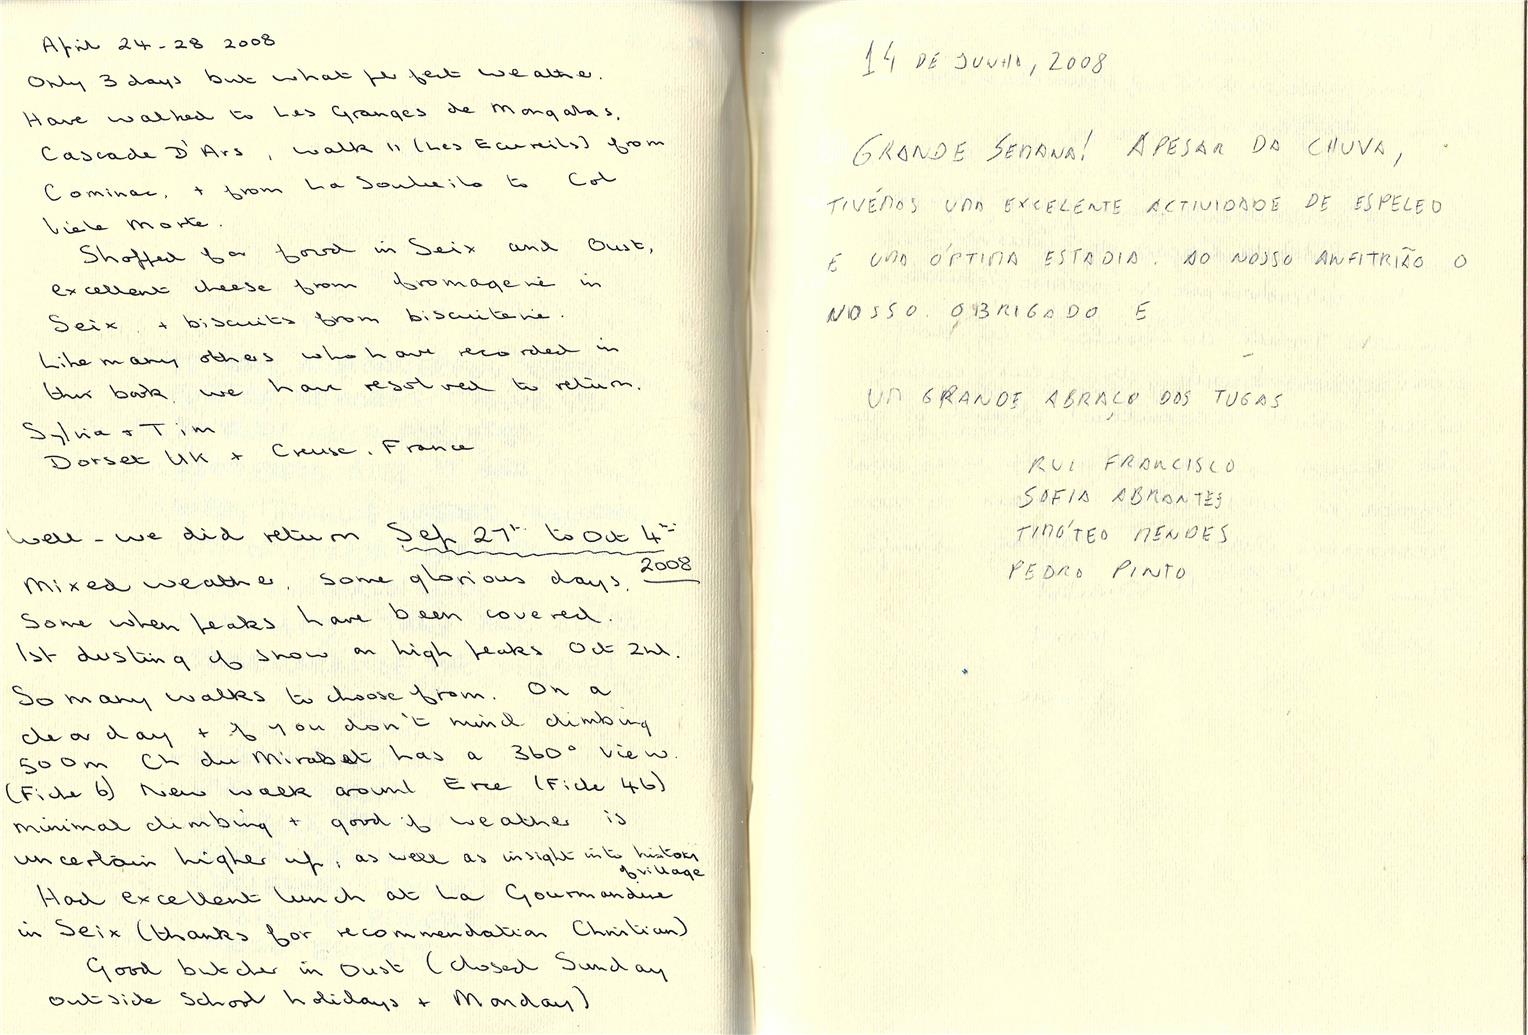 April 24-28 2008
Only 3 days but what perfect weather.
Have walked to Les Granges de Mongatas,
Cascade D'Ars, walk 11 (Les Ecureils) from
Cominac, + from La Soulieila to Col
Morte.
Shopped for food in Seix and Oust,
excellent cheese from fromagerie in
Seix + biscuits from biscuiterie.
Like many others who have recorded in
this book, we have resolved to return.
Sylvia + Tim
Dorset UK + Creuse, France
Well - we did return Sep 27th to Oct 4th
2008
Mixed weather, some glorious days,
some when peaks have been covered.
1st dusting of snow on high peaks Oct 2nd.
So many walks to choose from. On a
clear day + if you don't mind climbing
500m Ch du Mirabat has a 360° view.
(Fiche 6) New walk around Erce (Fiche 46)
minimal climbing + good if weather is
uncertain higher up, as well as insight into history
of village
Had excellent lunch at La Gourmandine
in Seix (thanks for recommendation Christian)
Good butcher in Oust (closed Sunday
outside school holidays + Monday)
14 DE JUNHO, 2008
GRANDE SEMANA! APESAR DA CHUVA,
TIVÉMOS UMA EXCELENTE ACTIVIDADE DE ESPELEO
E UMA ÓPTIMA ESTADIA. AO NOSSO ANFITRIÃO O
NOSSO OBRIGADO E
UM GRANDE ABRAÇO DOS TUGAS
RUI FRANCISCO
SOFIA ABRANTES
TIMÓTEO MENDES
PEDRO PINTO